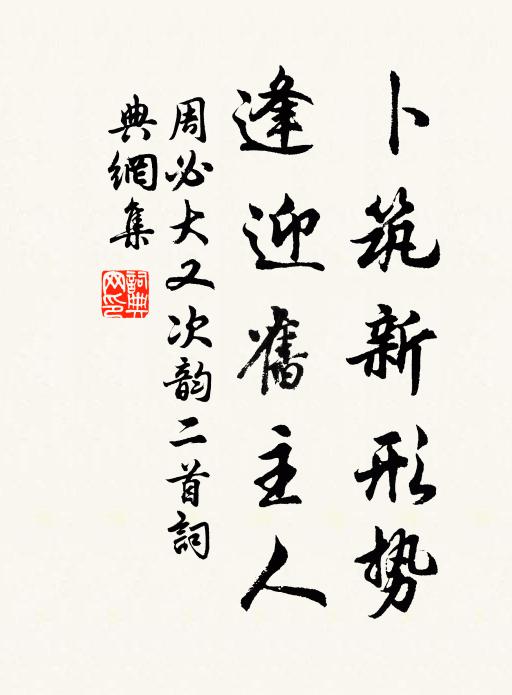 卜筑新形势
逢迎舊主人
周必大又次韵二首詞
典網集
詞典
网印